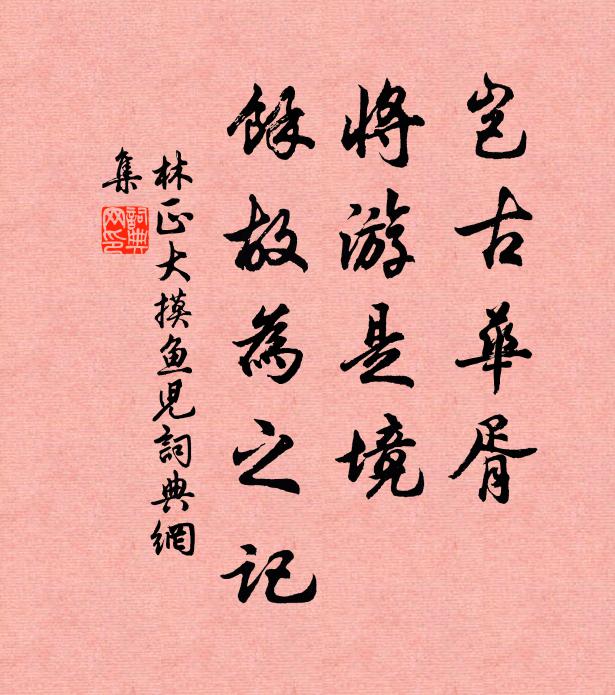 岂古華胥
將游是境
餘故為之記
林正大摸魚兒詞典網
集
詞典
网印